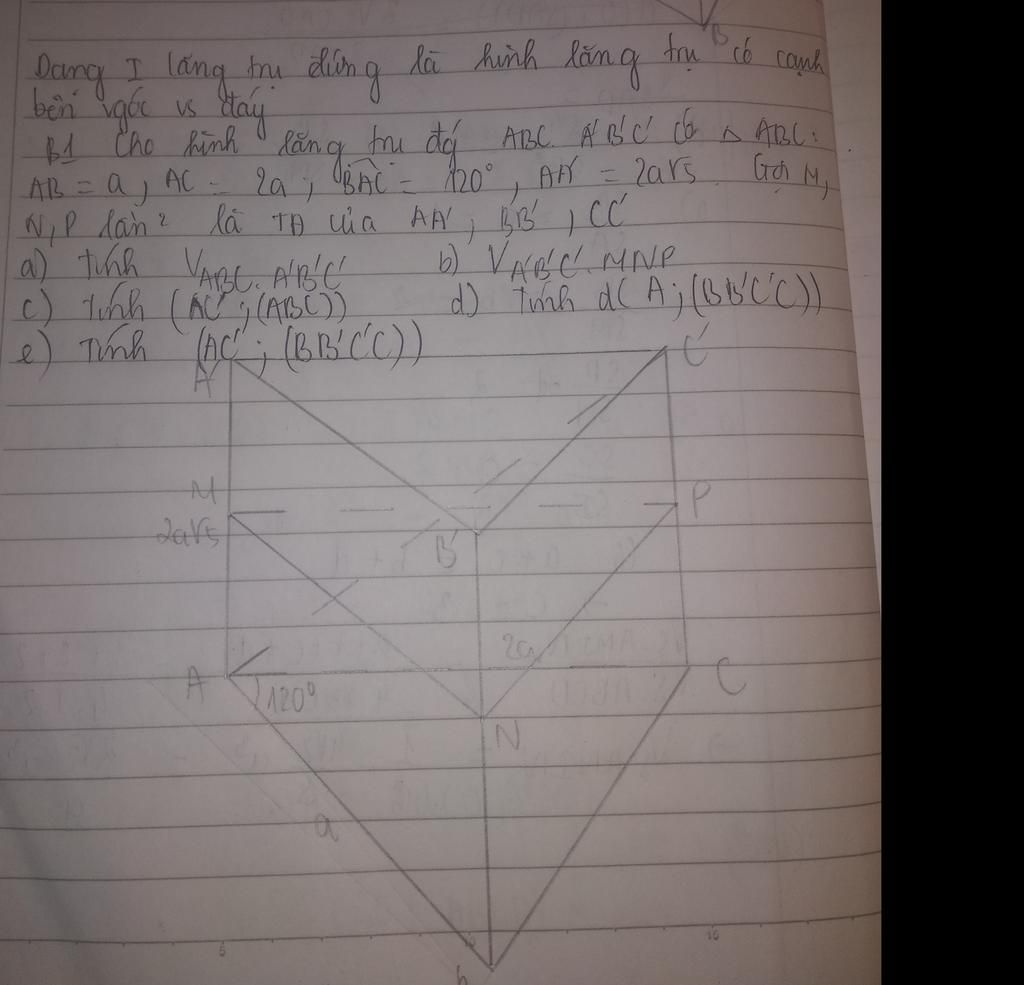 B
Dạng I lăng trụ đứng là hình lăng trụ có cạnh
bên vgóc vs đáy
B1 Cho hình lăng trụ đg ABC. A'B'C' có △ ABC:
AB = a, AC = 2a; BAC = 120°, AA' = 2a√5. Gọi M,
N, P lần² là TĐ của AA', BB', CC'
a) Tính V ABC. A'B'C' b) V A'B'C'. MNP
c) Tính (AC'; (ABC)) d) Tính d( A; (BB'C'C))
e) Tính (AC'; (BB'C'C))
A' C'
M P
2a√5 B'
2a
A C
120°
N
a
b
5 10 15